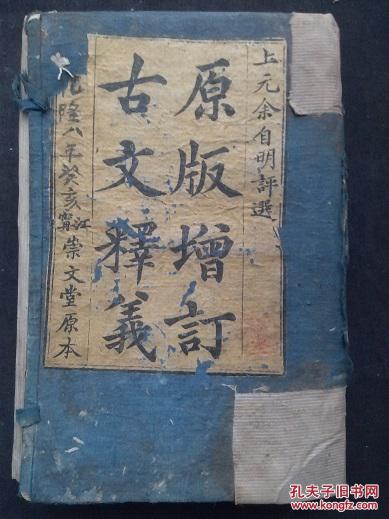 上元余自明評選
原版增訂
古文釋義
乾隆八年癸亥江寧崇文堂原本
孔夫子旧书网
www.kongfz.com